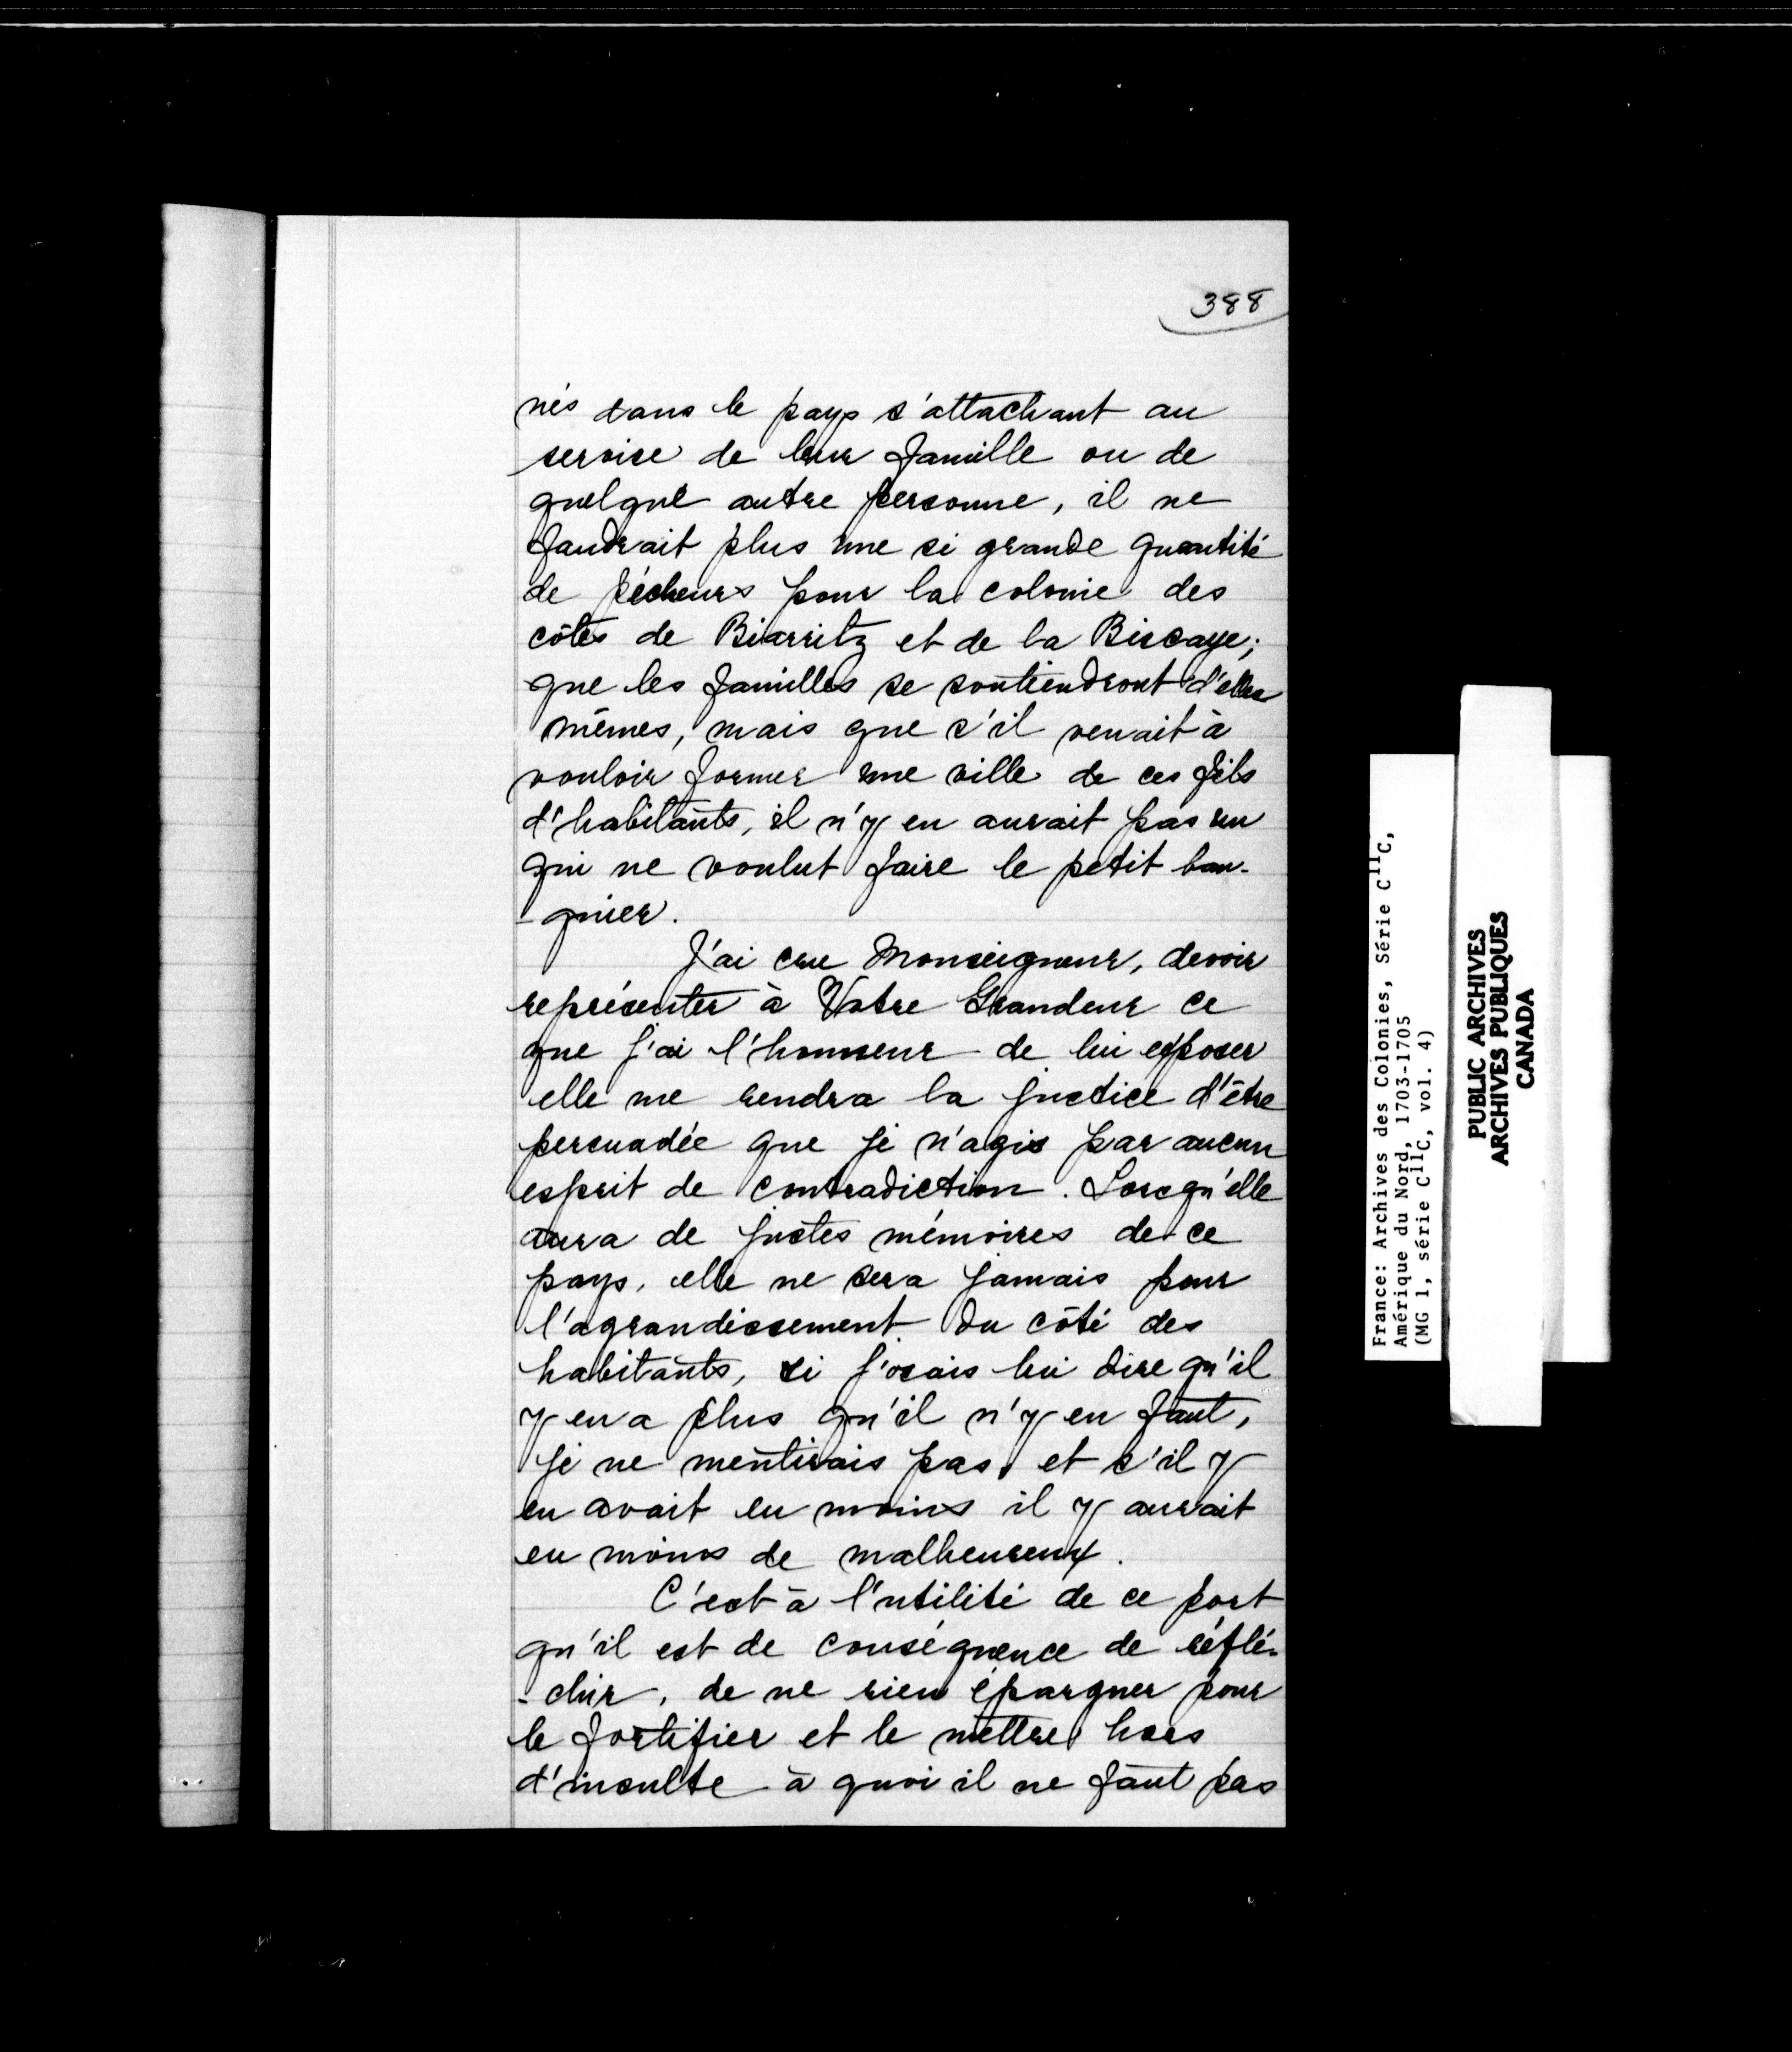 388
nés dans le pays s'attachant au
service de leur famille ou de
quelque autre personne, il ne
faudrait plus une si grande quantité
de pécheurs pour la colonie des
côtes de Biarritz et de la Biscaye;
que les familles se soutiendront d'elles
mêmes, mais que s'il venait à
vouloir former une ville de ces fils
d'habitants, il n'y en aurait pas un
qui ne voulut faire le petit ban-
-quier.
J'ai cru Monseigneur, devoir
représenter à Votre Grandeur ce
que j'ai l'honneur de lui exposer
elle me rendra la justice d'être
persuadée que je n'agis par aucun
esprit de contradiction. Lorsqu'elle
aura de justes mémoires de ce
pays, elle ne sera jamais pour
l'agrandissement du côté des
habitants, si j'osais lui dire qu'il
y en a plus qu'il n'y en faut,
je ne mentirais pas, et s'il y
en avait eu moins il y aurait
eu moins de malheureux.
C'est à l'utilité de ce port
qu'il est de conséquence de réflé-
-chir, de ne rien épargner pour
le fortifier et le mettre hors
d'insulte à quoi il ne faut pas
France: Archives des Colonies, Série C11C,
Amérique du Nord, 1703-1705
(MG 1, série C11C, vol. 4)
PUBLIC ARCHIVES
ARCHIVES PUBLIQUES
CANADA